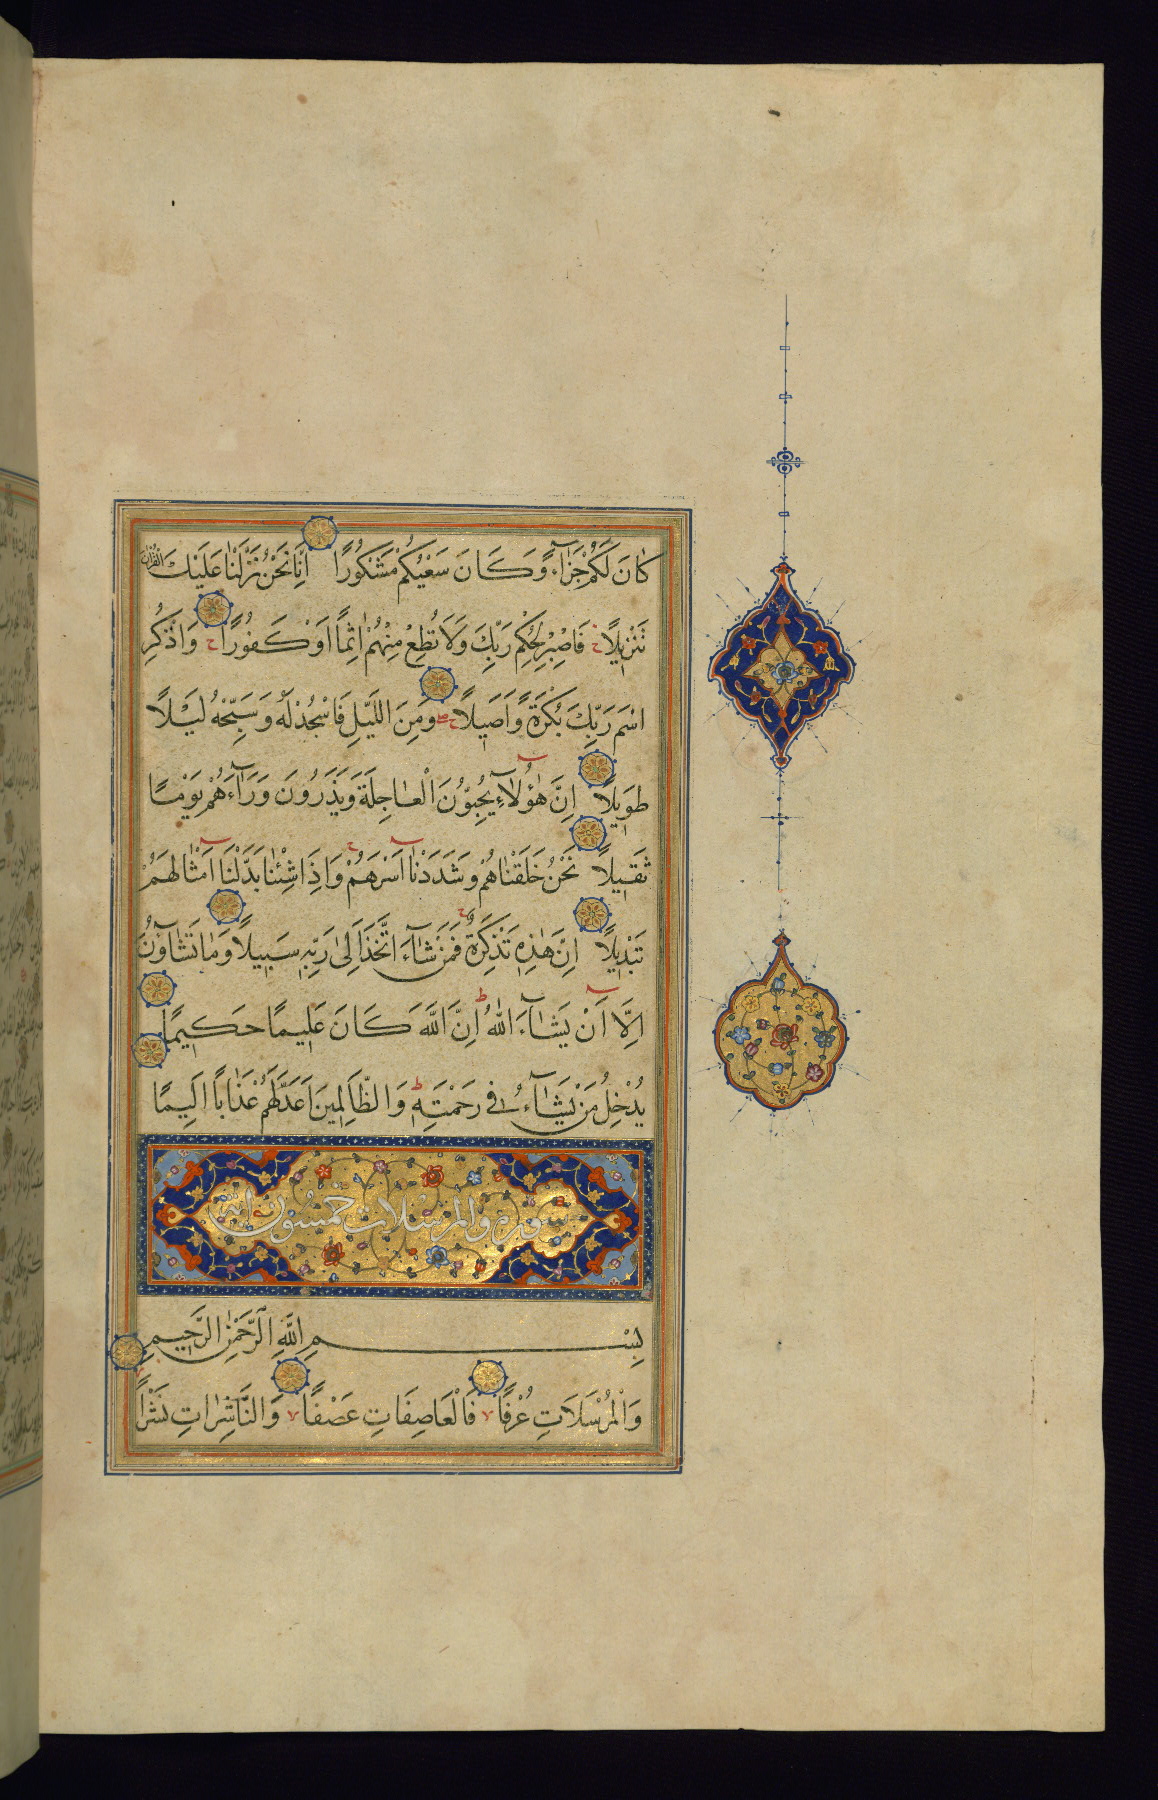 كَانَ لَكُمْ جَزَآءً وَكَانَ سَعْيُكُمْ مَشْكُورًا اِنَّا نَحْنُ نَزَّلْنَا عَلَيْكَ الْقُرْاٰنَ
تَنْزِيلًا فَاصْبِرْ لِحُكْمِ رَبِّكَ وَلَا تُطِعْ مِنْهُمْ اٰثِمًا اَوْ كَفُورًا وَاذْكُرِ
اسْمَ رَبِّكَ بُكْرَةً وَاَصِيلًا وَمِنَ اللَّيْلِ فَاسْجُدْ لَهُ وَسَبِّحْهُ لَيْلًا
طَوِيلًا اِنَّ هٰؤُلَآءِ يُحِبُّونَ الْعَاجِلَةَ وَيَذَرُونَ وَرَآءَهُمْ يَوْمًا
ثَقِيلًا نَحْنُ خَلَقْنَاهُمْ وَشَدَدْنَا اَسْرَهُمْ وَاِذَا شِئْنَا بَدَّلْنَا اَمْثَالَهُمْ
تَبْدِيلًا اِنَّ هٰذِهِ تَذْكِرَةٌ فَمَنْ شَآءَ اتَّخَذَ اِلَى رَبِّهِ سَبِيلًا وَمَا تَشَآؤُنَ
اِلَّا اَنْ يَشَآءَ اللّٰهُ اِنَّ اللّٰهَ كَانَ عَلِيمًا حَكِيمًا
يُدْخِلُ مَنْ يَشَآءُ فِي رَحْمَتِهِ وَالظَّالِمِينَ اَعَدَّ لَهُمْ عَذَابًا اَلِيمًا
سورة والمرسلات خمسون اية
بِسْمِ اللّٰهِ الرَّحْمٰنِ الرَّحِيمِ
وَالْمُرْسَلَاتِ عُرْفًا فَالْعَاصِفَاتِ عَصْفًا وَالنَّاشِرَاتِ نَشْرًا